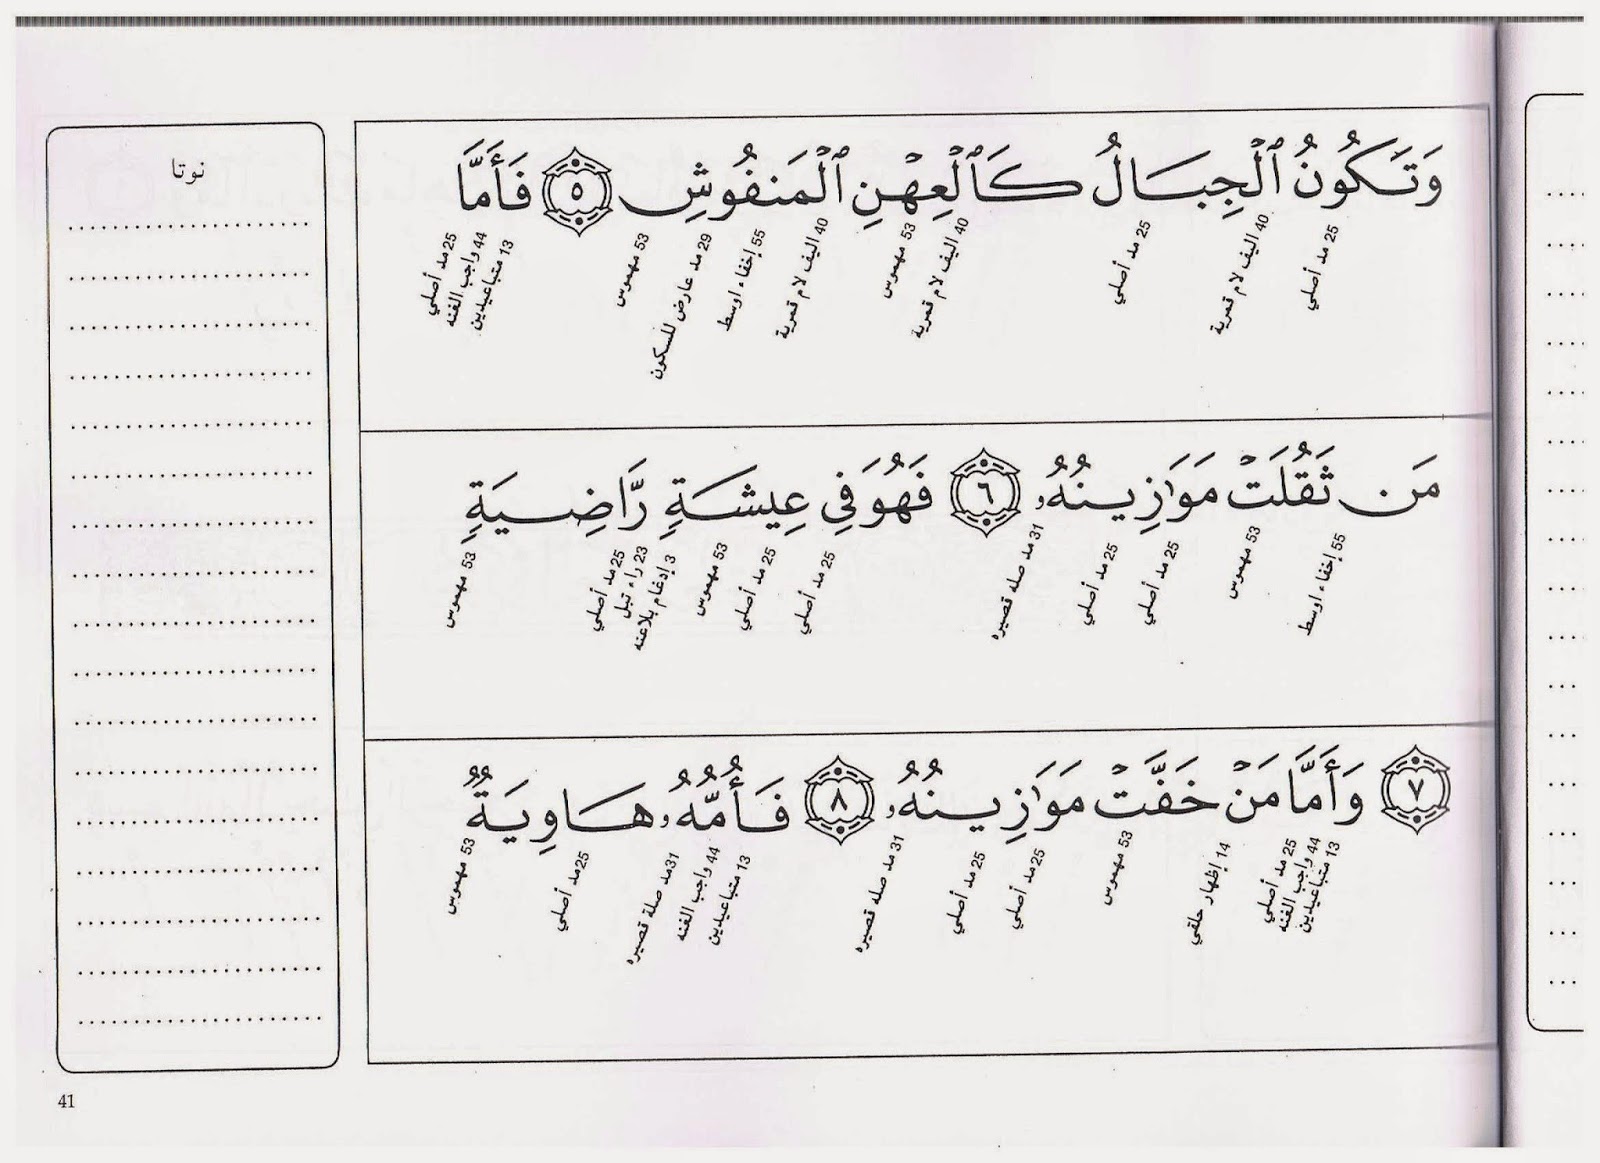 وَتَكُونُ ٱلْجِبَالُ كَٱلْعِهْنِ ٱلْمَنفُوشِ ٥ فَأَمَّا
25 مد أصلي
40 اليف لام قمرية
25 مد أصلي
40 اليف لام قمرية
53 مهموس
40 اليف لام قمرية
55 إخفاء اوسط
29 مد عارض للسكون
53 مهموس
13 متباعيدين
44 واجب الغنه
25 مد أصلي
مَن ثَقُلَتْ مَوَٰزِينُهُۥ ٦ فَهُوَ فِى عِيشَةٍ رَّاضِيَةٍ
55 إخفاء اوسط
53 مهموس
25 مد أصلي
25 مد أصلي
31 مد صله قصيره
25 مد أصلي
25 مد أصلي
53 مهموس
3 إدغام بلاعنه
23 راء تبل
25 مد أصلي
53 مهموس
٧ وَأَمَّا مَنْ خَفَّتْ مَوَٰزِينُهُۥ ٨ فَأُمُّهُۥ هَاوِيَةٌ
13 متباعيدين
44 واجب الغنه
25 مد أصلي
14 إظهار حلقي
53 مهموس
25 مد أصلي
25 مد أصلي
31 مد صله قصيره
13 متباعيدين
44 واجب الغنه
31 مد صلة قصيره
25 مد أصلي
53 مهموس
نوتا
41